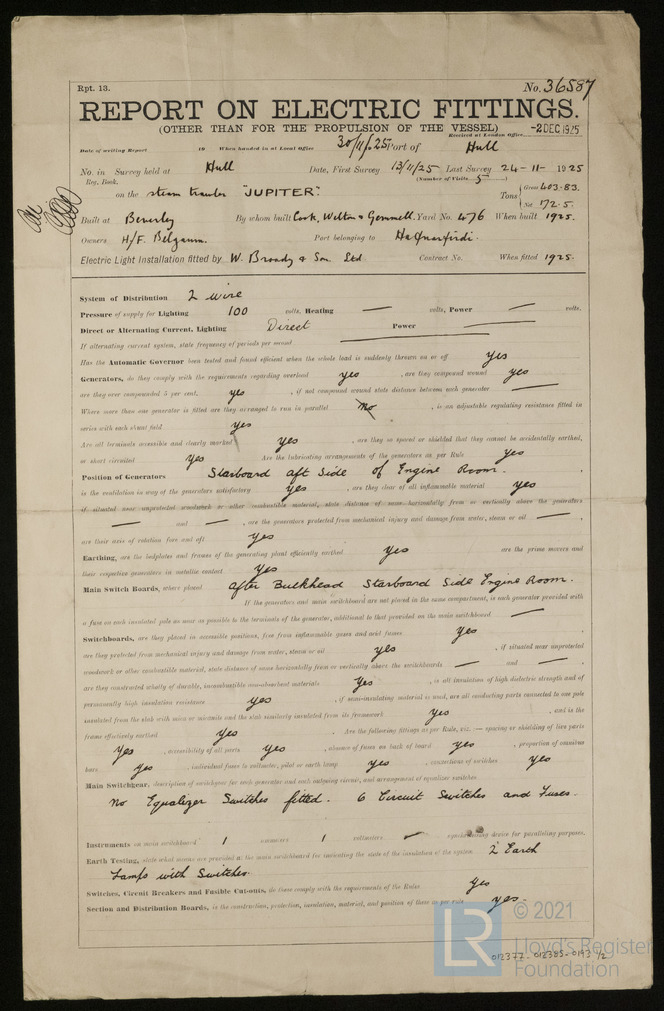 Rpt. 13. No. 36587
REPORT ON ELECTRIC FITTINGS.
(OTHER THAN FOR THE PROPULSION OF THE VESSEL)
Received at London Office -2 DEC 1925
Date of writing Report 19 When handed in at Local Office 30/11/25 Port of Hull
No. in Survey held at Hull Date, First Survey 13/11/25 Last Survey 24-11- 1925
Reg. Book. (Number of Visits 5)
on the steam trawler "JUPITER" Tons Gross 403.83
Net 172.5
Built at Beverley By whom built Cook, Welton & Gemmell. Yard No. 476 When built 1925.
Owners H/F. Belgaum. Port belonging to Hafnarfirdi.
Electric Light Installation fitted by W. Broady & Son Ltd Contract No. When fitted 1925.
System of Distribution 2 wire
Pressure of supply for Lighting 100 volts, Heating — volts, Power — volts.
Direct or Alternating Current, Lighting Direct Power —
If alternating current system, state frequency of periods per second
Has the Automatic Governor been tested and found efficient when the whole load is suddenly thrown on or off yes
Generators, do they comply with the requirements regarding overload yes , are they compound wound yes
are they over compounded 5 per cent. yes , if not compound wound state distance between each generator —
Where more than one generator is fitted are they arranged to run in parallel No , is an adjustable regulating resistance fitted in
series with each shunt field yes
Are all terminals accessible and clearly marked yes , are they so spaced or shielded that they cannot be accidentally earthed,
or short circuited yes Are the lubricating arrangements of the generators as per Rule yes
Position of Generators Starboard aft Side of Engine Room.
is the ventilation in way of the generators satisfactory yes , are they clear of all inflammable material yes ,
if situated near unprotected woodwork or other combustible material, state distance of same horizontally from or vertically above the generators
— and — , are the generators protected from mechanical injury and damage from water, steam or oil — ,
are their axis of rotation fore and aft yes
Earthing, are the bedplates and frames of the generating plant efficiently earthed yes are the prime movers and
their respective generators in metallic contact yes
Main Switch Boards, where placed After Bulkhead Starboard Side Engine Room.
If the generators and main switchboard are not placed in the same compartment, is each generator provided with
a fuse on each insulated pole as near as possible to the terminals of the generator, additional to that provided on the main switchboard —
Switchboards, are they placed in accessible positions, free from inflammable gases and acid fumes yes ,
are they protected from mechanical injury and damage from water, steam or oil yes , if situated near unprotected
woodwork or other combustible material, state distance of same horizontally from or vertically above the switchboards — and — ,
are they constructed wholly of durable, incombustible non-absorbent materials yes , is all insulation of high dielectric strength and of
permanently high insulation resistance yes , if semi-insulating material is used, are all conducting parts connected to one pole
insulated from the slab with mica or micanite and the slab similarly insulated from its framework yes , and is the
frame effectively earthed yes Are the following fittings as per Rule, viz. — spacing or shielding of live parts
yes , accessibility of all parts yes , absence of fuses on back of board yes , proportion of omnibus
bars yes , individual fuses to voltmeter, pilot or earth lamp yes , connections of switches yes
Main Switchgear, description of switchgear for each generator and each outgoing circuit, and arrangement of equalizer switches
No Equalizer Switches fitted. 6 Circuit Switches and Fuses.
Instruments on main switchboard 1 ammeters 1 voltmeters synchronising device for paralleling purposes.
Earth Testing, state what means are provided at the main switchboard for indicating the state of the insulation of the system 2 Earth
Lamps with Switches.
Switches, Circuit Breakers and Fusible Cut-outs, do these comply with the requirements of the Rules Yes
Section and Distribution Boards, is the construction, protection, insulation, material, and position of these as per rule yes.
LR © 2021
Lloyd's Register
Foundation
012377-012385-0193 1/2